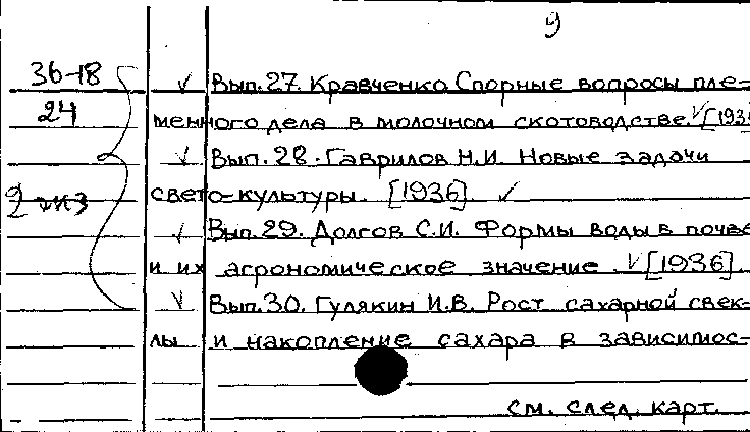 9
36-18 ✓ Вып. 27. Кравченко Спорные вопросы пле=
24 менного дела в молочном скотоводстве. ✓ [193
✓ Вып. 28. Гаврилов Н.И. Новые задачи
2 экз свето-культуры. [1936] ✓
✓ Вып. 29. Долгов С.И. Формы воды в почве
и их агрономическое значение. ✓ [1936].
✓ Вып. 30. Гулякин И.В. Рост сахарной свек-
лы и накопление сахара в зависимос-
см. след. карт.